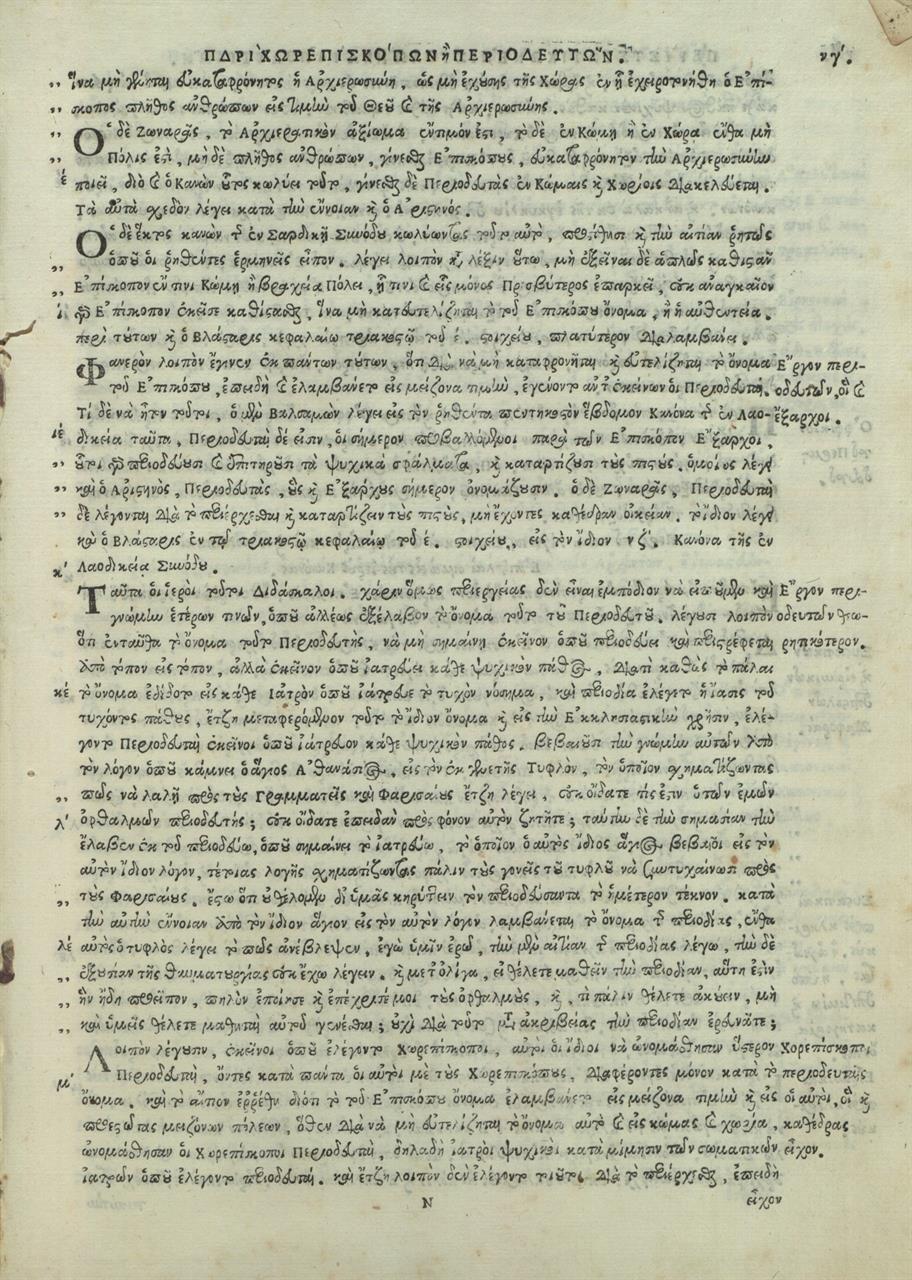 ΠΔΡΙ ΧΩΡΕΠΙΣΚΟΠΩΝ ἢ ΠΕΡΙΟΔΕΥΤΩΝ. νγ΄.
,, ἵνα μὴ γίνηται εὐκαταφρόνητος ἡ Ἀρχιερωσύνη, ὡς μὴ ἐχούσης τῆς Χώρας ἐν ᾗ ἐχειροτονήθη ὁ Ἐπί-
,, σκοπος πλῆθος ἀνθρώπων εἰς τιμὴν τοῦ Θεοῦ καὶ τῆς Ἀρχιερωσύνης.
,, Ὁ δὲ Ζωναρᾶς, τὸ Ἀρχιερατικὸν ἀξίωμα ἔντιμόν ἐστι, τὸ δὲ ἐν Κώμῃ ἢ ἐν Χώρᾳ ἔνθα μὴ
,, Πόλις ἐστὶ, μὴ δὲ πλῆθος ἀνθρώπων, γίνεσθαι Ἐπισκόπους, εὐκαταφρόνητον τὴν Ἀρχιερωσύνην
έ ποιεῖ, διὸ καὶ ὁ Κανὼν οὗτος κωλύει τοῦτο, γίνεσθαι δὲ Περιοδευτὰς ἐν Κώμαις καὶ Χωρίοις διακελεύεται.
Τὰ αὐτὰ σχεδὸν λέγει κατὰ τὴν ἔννοιαν καὶ ὁ Ἀριστηνός.
Ὁ δὲ ἕκτος κανὼν τῆς ἐν Σαρδικῇ Συνόδου κωλύωντας τοῦτο αὐτὸ, προσθέτει καὶ τὴν αἰτίαν ῥητῶς
,, ὁποῦ οἱ ῥηθέντες ἑρμηνεῖς εἶπον. λέγει λοιπὸν κατὰ λέξιν οὕτω, μὴ ἐξεῖναι δὲ ἁπλῶς καθιστᾶν
,, Ἐπίσκοπον ἔν τινι Κώμῃ ἢ βραχείᾳ Πόλει, ᾗ τινι καὶ εἷς μόνος Πρεσβύτερος ἐπαρκεῖ, οὐκ ἀναγκαῖον
ί. γὰρ Ἐπίσκοπον ἐκεῖσε καθίστασθαι, ἵνα μὴ κατευτελίζηται τὸ τοῦ Ἐπισκόπου ὄνομα, ἢ ἡ αὐθεντεία.
περὶ τούτων καὶ ὁ Βλάσταρις κεφαλαίῳ τριακοστῷ τοῦ έ. στοιχείου, πλατύτερον διαλαμβάνει.
Φανερὸν λοιπὸν ἔγινεν ἐκ πάντων τούτων, ὅτι διὰ νὰ μὴ καταφρονῆται καὶ εὐτελίζηται τὸ ὄνομα Ἔργον περι-
τοῦ Ἐπισκόπου, ἐπειδὴ καὶ ἐλαμβάνετο εἰς μείζονα τιμὴν, ἐγένοντο ἀντ' ἐκείνων οἱ Περιοδευταί. οδευτῶν, οἳ καὶ
Τί δὲ νὰ ἦτον τοῦτοι, ὁ μὲν Βαλσαμὼν λέγει εἰς τὸν ῥηθέντα πεντηκοστὸν ἕβδομον Κανόνα τῆς ἐν Λαο- ἔξαρχοι.
ιέ δικείᾳ ταῦτα, Περιοδευταὶ δέ εἰσιν, οἱ σήμερον προβαλλόμενοι παρὰ τῶν Ἐπισκόπων Ἔξαρχοι,
,, οὗτοι γὰρ περιοδεύουσι καὶ ἐπιτηροῦσι τὰ ψυχικὰ σφάλματα, καὶ καταρτίζουσι τοὺς πιστούς. ὁμοίως λέγει
,, καὶ ὁ Ἀριστηνός, Περιοδευτὰς, οὓς καὶ Ἐξάρχους σήμερον ὀνομάζουσιν. ὁ δὲ Ζωναρᾶς, Περιοδευταὶ
,, δὲ λέγονται διὰ τὸ περιέρχεσθαι καὶ καταρτίζειν τοὺς πιστούς, μὴ ἔχοντες καθέδραν οἰκείαν. τὸ ἴδιον λέγει
καὶ ὁ Βλάσταρις ἐν τῷ τριακοστῷ κεφαλαίῳ τοῦ έ. στοιχείου, εἰς τὸν ἴδιον νζ΄. Κανόνα τῆς ἐν
κ΄ Λαοδικείᾳ Συνόδου.
Ταῦτα οἱ ἱεροὶ τοῦτοι Διδάσκαλοι. χάριν ὅμως περιεργείας δὲν εἶναι ἐμπόδιον νὰ εἰποῦμεν καὶ Ἔργον περι-
γνώμην ἑτέρων τινῶν, ὁποῦ ἀλλέως ἐξέλαβον τὸ ὄνομα τοῦτο τοῦ Περιοδευτοῦ. λέγουσι λοιπὸν οδευτῶν θεω-
ὅτι ἐνταῦθα τὸ ὄνομα τοῦτο Περιοδευτής, νὰ μὴ σημαίνῃ ἐκεῖνον ὁποῦ περιοδεύει καὶ περιστρέφεται ρητικότερον.
ἀπὸ τόπον εἰς τόπον, ἀλλὰ ἐκεῖνον ὁποῦ ἰατρεύει κάθε ψυχικὸν πάθος, διατὶ καθὼς τὸ πάλαι
κέ τὸ ὄνομα ἐδίδοτο εἰς κάθε Ἰατρὸν ὁποῦ ἰάτρευε τὸ τυχὸν νόσημα, καὶ περιοδία ἐλέγετο ἡ ἴασις τοῦ
τυχόντος πάθους, ἔτζη μεταφερόμενον τοῦτο τὸ ἴδιον ὄνομα καὶ εἰς τὴν Ἐκκλησιαστικὴν χρῆσιν, ἐλέ-
γοντο Περιοδευταὶ ἐκεῖνοι ὁποῦ ἰάτρευον κάθε ψυχικὸν πάθος. βεβαιοῦσι τὴν γνώμην αὐτῶν ἀπὸ
τὸν λόγον ὁποῦ κάμνει ὁ ἅγιος Ἀθανάσιος, εἰς τὸν ἐκ γενετῆς Τυφλὸν, τὸν ὁποῖον σχηματίζωντας
,, πῶς νὰ λαλῇ πρὸς τοὺς Γραμματεῖς καὶ Φαρισαίους ἔτζη λέγει, οὐκ οἴδατε τίς ἐστιν ὁ τῶν ἐμῶν
λ΄ ὀφθαλμῶν περιοδευτής; οὐκ οἴδατε ἐπειδὰν πρὸς φόνον αὐτὸν ζητῆτε; ταύτην δὲ τὴν σημασίαν τὴν
ἔλαβεν ἐκ τοῦ περιοδεύω, ὁποῦ σημαίνει τὸ ἰατρεύω, τὸ ὁποῖον ὁ αὐτὸς ἴδιος ἅγιος βεβαιοῖ εἰς τὸν
αὐτὸν ἴδιον λόγον, τέτοιας λογῆς σχηματίζωντας πάλιν τοὺς γονεῖς τοῦ τυφλοῦ νὰ συντυχαίνωσι πρὸς
,, τοὺς Φαρισαίους. ἔστω ὅτι οὐ θέλομεν δι' ὑμᾶς κηρύττειν τὸν περιοδεύσαντα τὸ ἡμέτερον τέκνον. κατὰ
τὴν αὐτὴν ἔννοιαν ἀπὸ τὸν ἴδιον ἅγιον εἰς τὸν αὐτὸν λόγον λαμβάνεται τὸ ὄνομα τῆς περιοδίας, ἔνθα
λέ αὐτὸς ὁ τυφλὸς λέγει τὸ πῶς ἀνέβλεψεν, ἐγὼ ὑμῖν ἐρῶ, τὴν μὲν αἰτίαν τῆς περιοδίας λέγω, τὴν δὲ
,, ἐξουσίαν τῆς θαυματουργίας οὐκ ἔχω λέγειν. καὶ μετ' ὀλίγα, εἰ θέλετε μαθεῖν τὴν περιοδίαν, αὕτη ἐστὶν
,, ἣν ἤδη προεῖπον, πηλὸν ἐποίησε καὶ ἐπέχρισέ μοι τοὺς ὀφθαλμούς, καὶ, τί πάλιν θέλετε ἀκούειν, μὴ
,, καὶ ὑμεῖς θέλετε μαθηταὶ αὐτοῦ γενέσθαι; οὐχὶ διὰ τοῦτο μετὰ ἀκριβείας τὴν περιοδίαν ἐρευνᾶτε;
Λοιπὸν λέγουσιν, ἐκεῖνοι ὁποῦ ἐλέγοντο Χωρεπίσκοποι, αὐτοὶ οἱ ἴδιοι νὰ ὠνομάσθησαν ὕστερον Χορεπίσκοποι
μ΄ Περιοδευταὶ, ὄντες κατὰ πάντα οἱ αὐτοὶ μὲ τοὺς Χωρεπισκόπους, διαφέροντες μόνον κατὰ τὸ περιοδευτῆς
ὄνομα. καὶ τὸ αἴτιον ἐῤῥέθη διότι τὸ τοῦ Ἐπισκόπου ὄνομα ἐλαμβάνετο εἰς μείζονα τιμὴν καὶ εἰς οἱ αὐτοὶ, οἳ καὶ
προεστῶτας μειζόνων πόλεων, ὅθεν διὰ νὰ μὴ εὐτελίζηται τὸ ὄνομα αὐτὸ καὶ εἰς κώμας καὶ χωρία, καθέδρας
ὠνομάσθησαν οἱ Χωρεπίσκοποι Περιοδευταὶ, δηλαδὴ ἰατροὶ ψυχικοὶ κατὰ μίμησιν τῶν σωματικῶν εἶχον.
ἰατρῶν ὁποῦ ἐλέγοντο περιοδευταί. καὶ ἔτζη λοιπὸν δὲν ἐλέγοντο τοῦτοι διὰ τὸ περιέρχεσθαι, ἐπειδὴ
N εἶχον